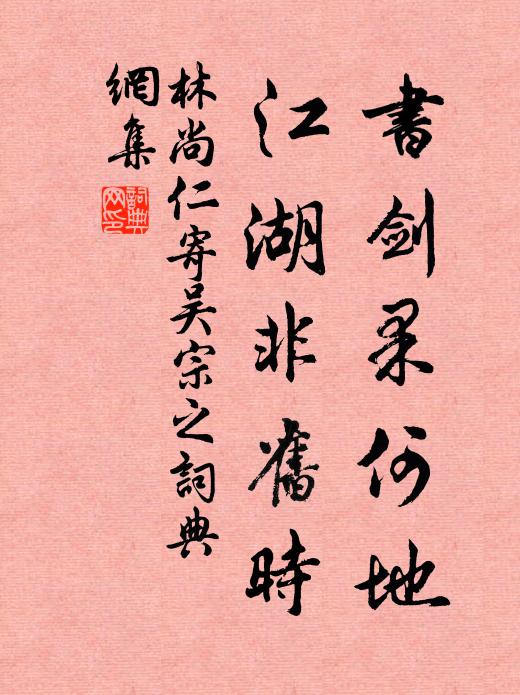 書劍果何地
江湖非舊時
林尚仁寄吴宗之詞典
網集
詞典
网印